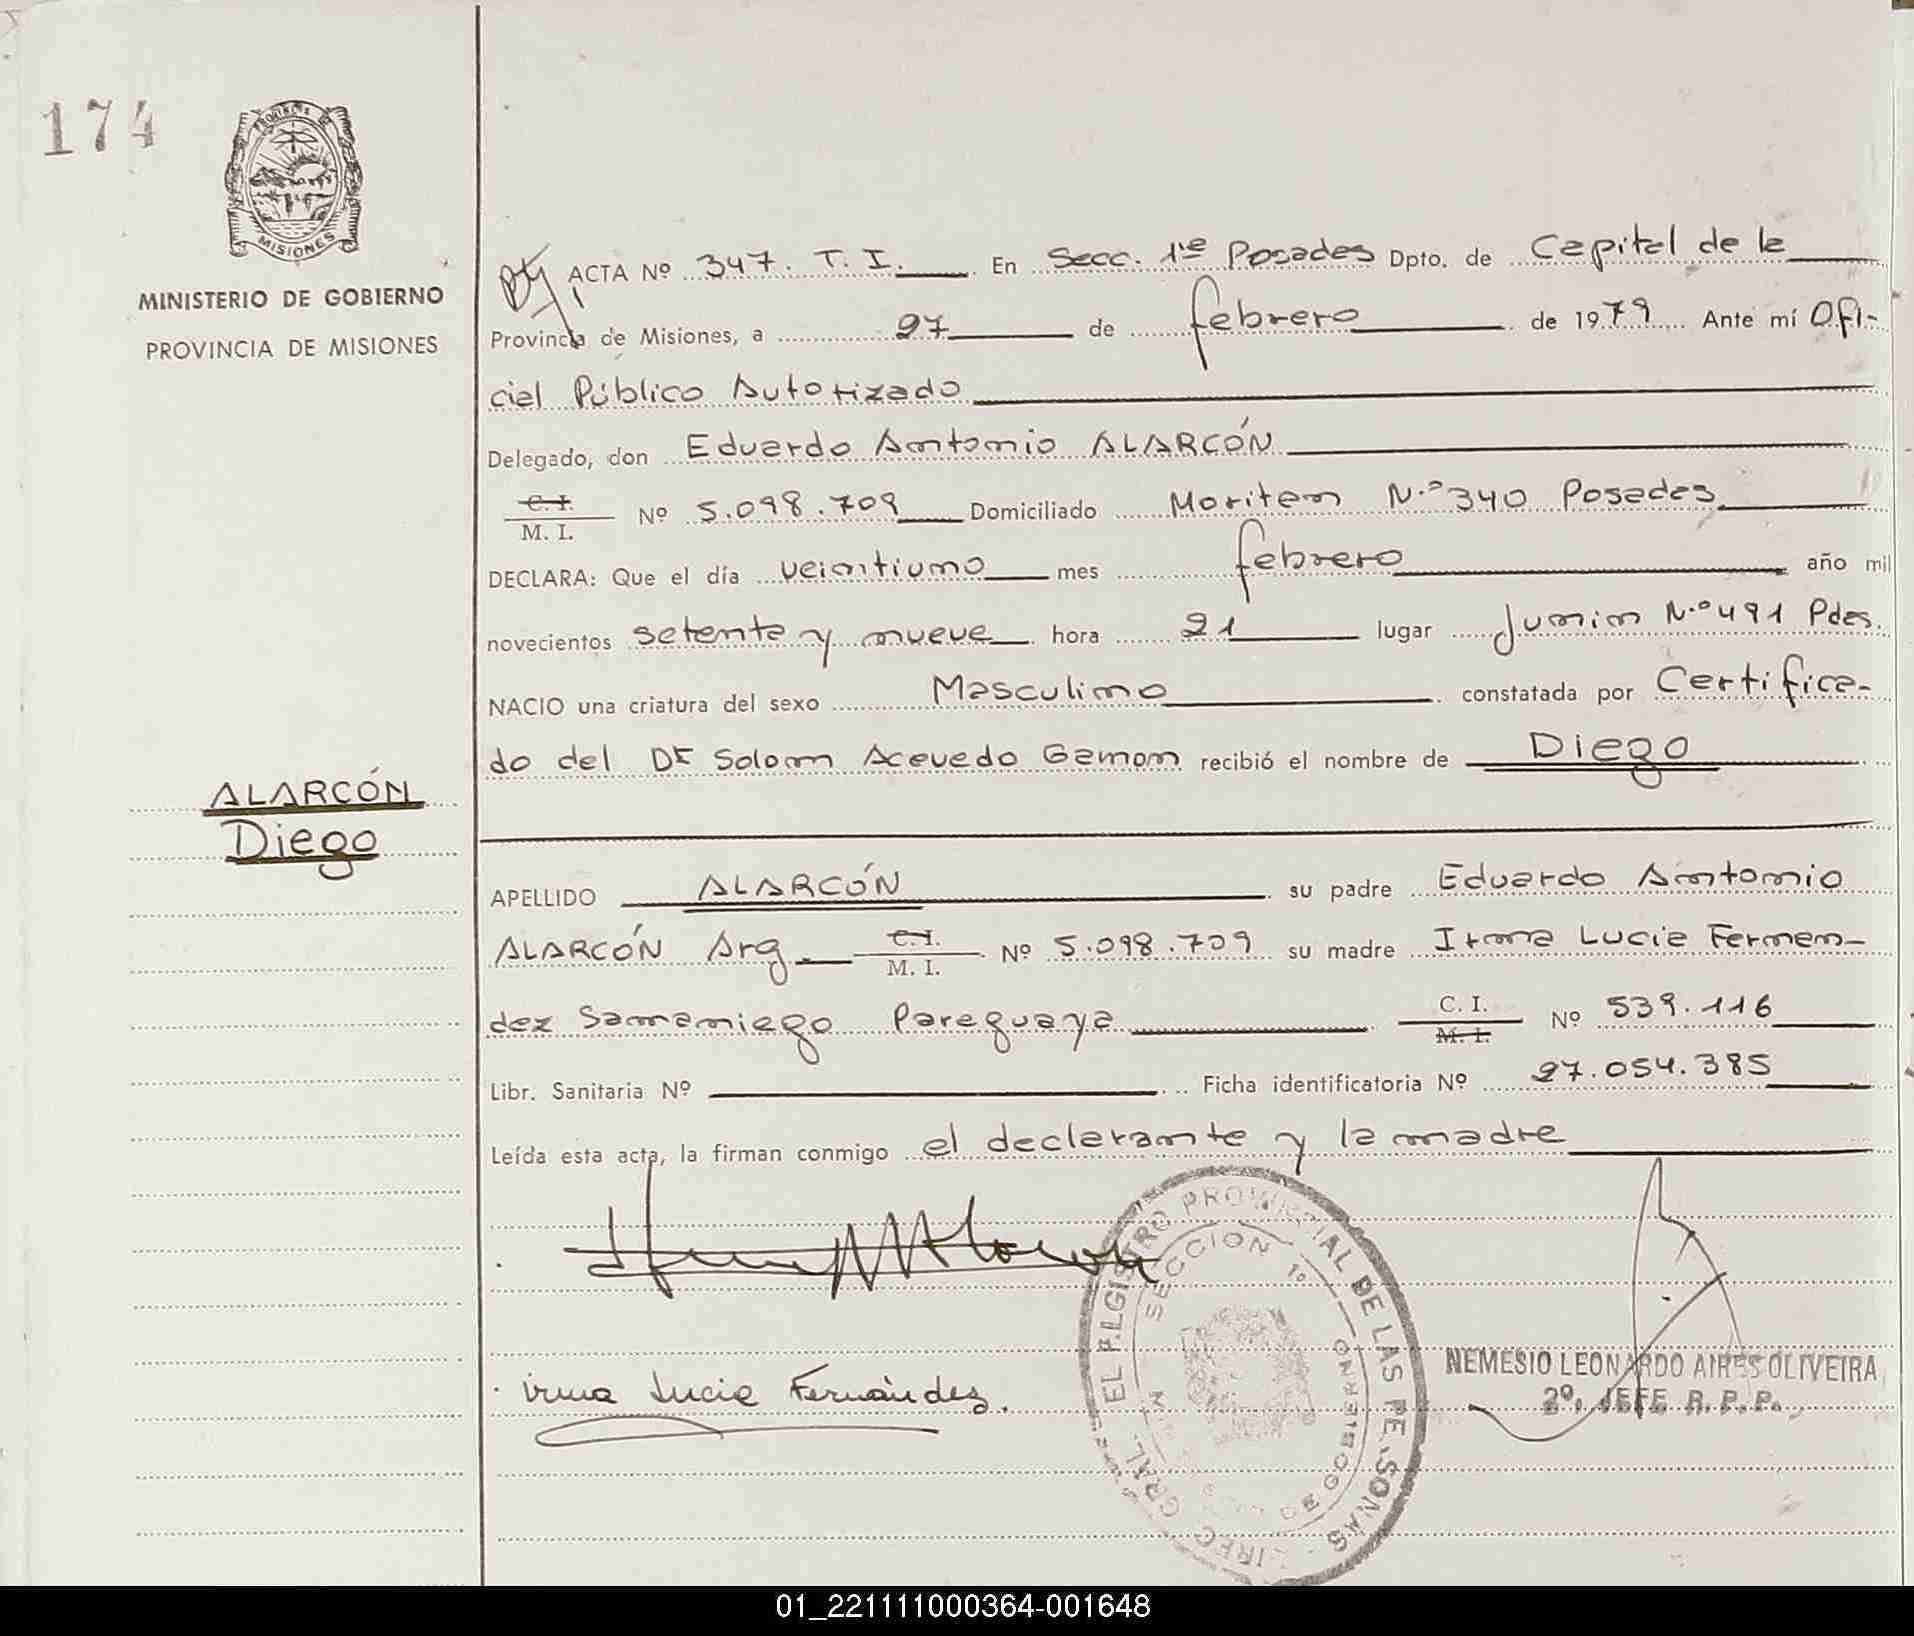 174
PROVINCIA DE
MISIONES
MINISTERIO DE GOBIERNO
PROVINCIA DE MISIONES
ALARCÓN
Diego
ACTA Nº 347. T. I. En Secc. 1ra Posadas Dpto. de Capital de la
Provincia de Misiones, a 27 de febrero de 1979 Ante mí Ofi-
cial Público Autorizado
Delegado, don Eduardo Antonio ALARCÓN
C. I.
M. I. Nº 5.098.709 Domiciliado Moritan N.º 340 Posadas
DECLARA: Que el día veintiuno mes febrero año mil
novecientos setenta y nueve hora 21 lugar Junin N.º 491 Pdas.
NACIO una criatura del sexo Masculino constatada por Certifica-
do del Dr Solom Acevedo Gamon recibió el nombre de Diego
APELLIDO ALARCÓN su padre Eduardo Antonio
ALARCÓN Arg. C. I. M. I. Nº 5.098.709 su madre Irma Lucia Fernan-
dez Samaniego Paraguaya C. I. M. I. Nº 539.116
Libr. Sanitaria Nº Ficha identificatoria Nº 27.054.385
Leída esta acta, la firman conmigo el declarante y la madre
irma Lucia Fernández.
DIREC. GRAL. EL REGISTRO PROVINCIAL DE LAS PERSONAS
SECCION 1º
DE GOBIERNO
NEMESIO LEONARDO AIRES OLIVEIRA
2º. JEFE R. P. P.
01_221111000364-001648